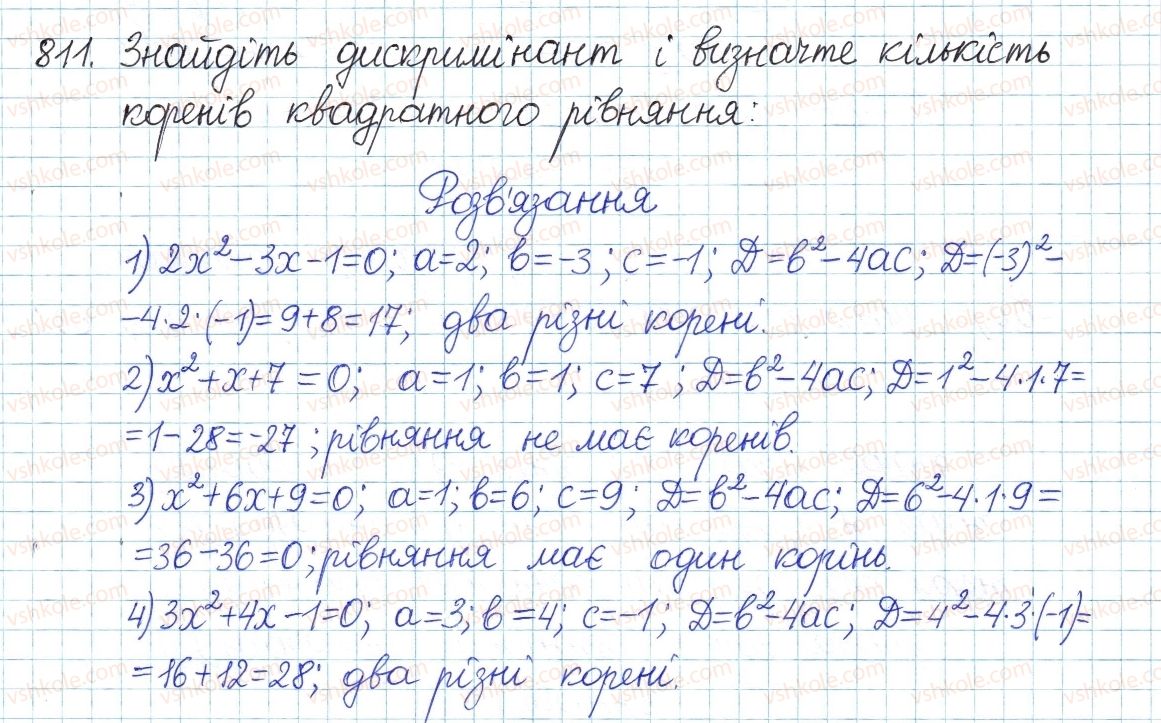 811. Знайдіть дискримінант і визначте кількість
коренів квадратного рівняння:
Розв'язання
1) 2x² - 3x - 1 = 0; a = 2; b = -3; c = -1; D = b² - 4ac; D = (-3)² -
- 4·2·(-1) = 9 + 8 = 17; два різні корені.
2) x² + x + 7 = 0; a = 1; b = 1; c = 7; D = b² - 4ac; D = 1² - 4·1·7 =
= 1 - 28 = -27; рівняння не має коренів.
3) x² + 6x + 9 = 0; a = 1; b = 6; c = 9; D = b² - 4ac; D = 6² - 4·1·9 =
= 36 - 36 = 0; рівняння має один корінь.
4) 3x² + 4x - 1 = 0; a = 3; b = 4; c = -1; D = b² - 4ac; D = 4² - 4·3·(-1) =
= 16 + 12 = 28; два різні корені.